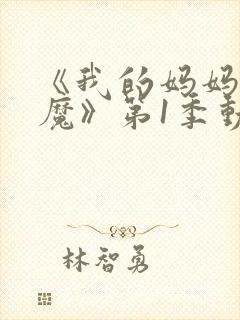 《我的妈妈
魔》第1季動
林智勇